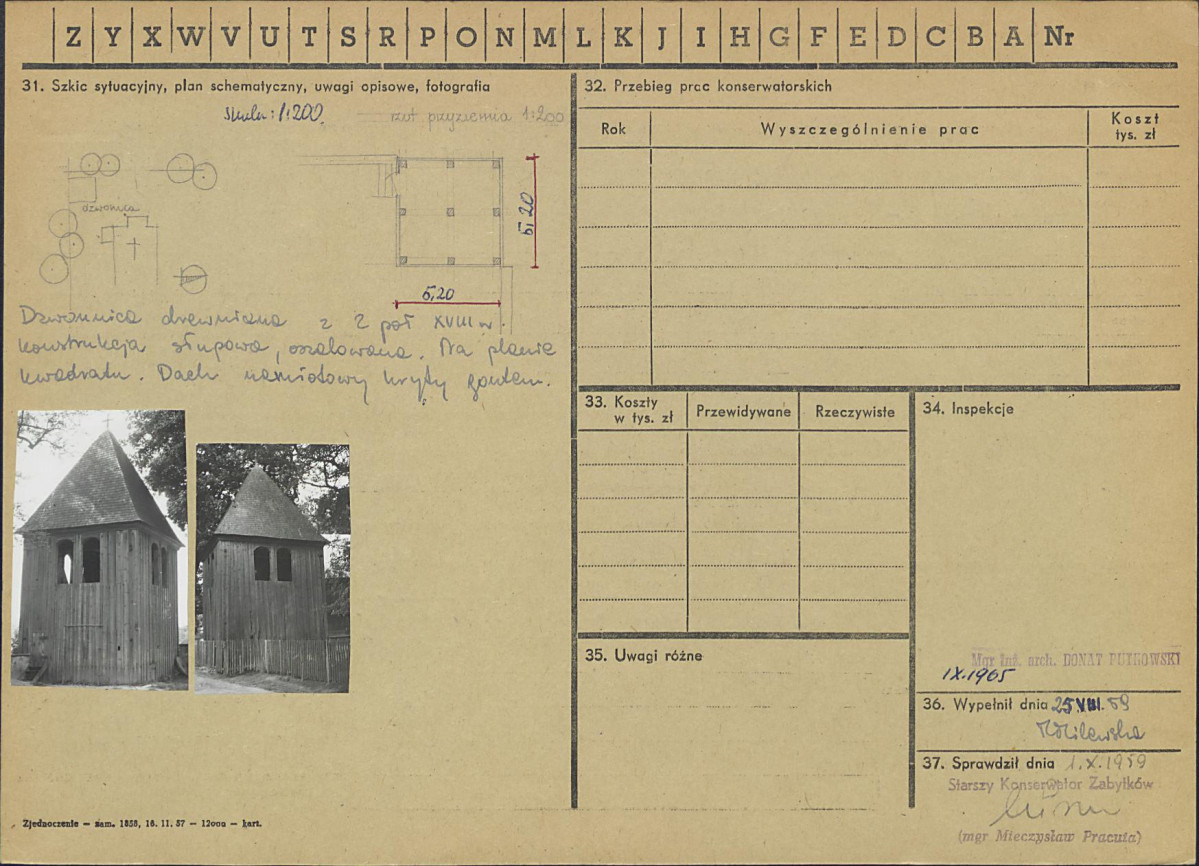 Z Y X W V U T S R P O N M L K J I H G F E D C B A Nr
31. Szkic sytuacyjny, plan schematyczny, uwagi opisowe, fotografia
skala: 1:200
rzut przyziemia 1:200
dzwonnica
5,20
5,20
Dzwonnica drewniana z 2 poł XVIII w.
konstrukcja słupowa, oszalowana. Na planie
kwadratu. Dach namiotowy kryty gontem.
Zjednoczenie — zam. 1858, 16. 11. 57 — 12000 — kart.
32. Przebieg prac konserwatorskich
Rok
Wyszczególnienie prac
Koszt
tys. zł
33. Koszty
w tys. zł
Przewidywane
Rzeczywiste
34. Inspekcje
Mgr Inż. arch. DONAT PUTKOWSKI
IX.1965
35. Uwagi różne
36. Wypełnił dnia 25 VIII. 59
Milewska
37. Sprawdził dnia 1.X.1959
Starszy Konserwator Zabytków
(mgr Mieczysław Pracuta)